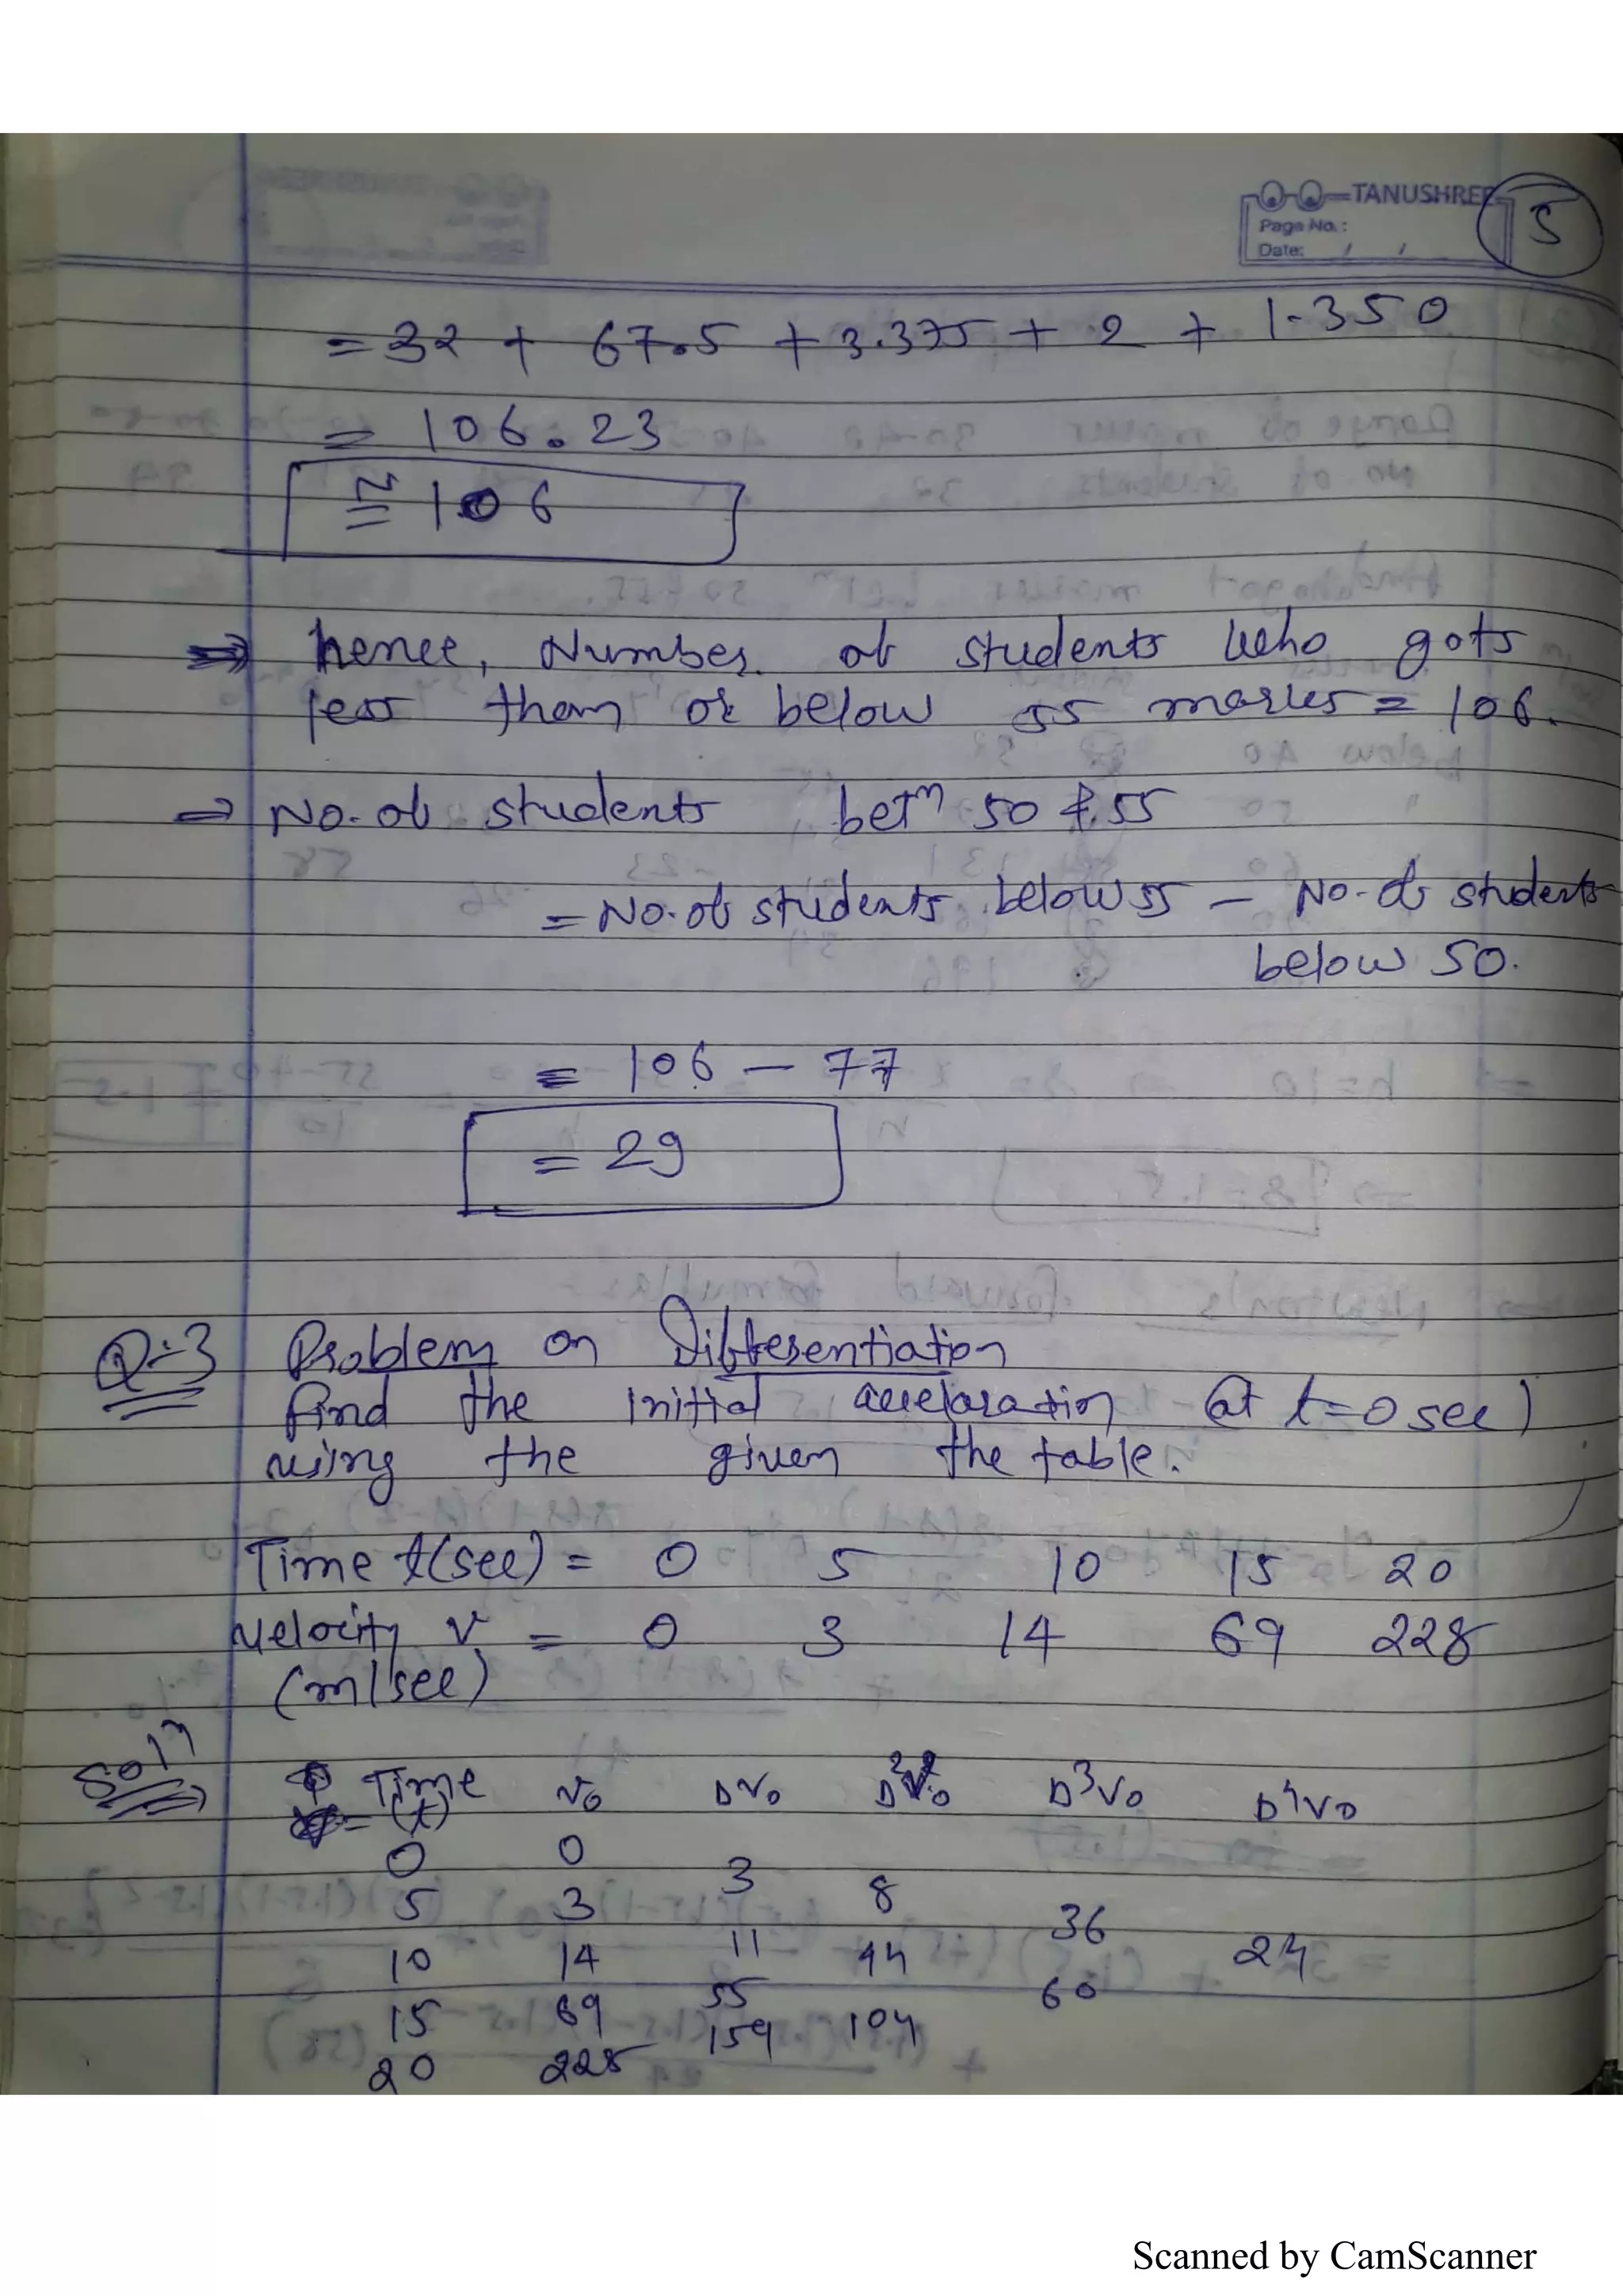 TANUSHREE
Page No.:
Date: / /
5
= 32 + 67.5 + 3.375 + 2 + 1.350
= 106.23
≅ 106
⇒ hence, Number of students who gots
less than or below 55 marks = 106.
⇒ No. of students betn 50 & 55
= No. of students below 55 - No. of students
below 50.
= 106 - 77
= 29
Q-3 Problem on Differentiation
find the initial accelaration (at t=0 sec)
using the given the table.
Time t(sec) = 0 5 10 15 20
Velocity v = 0 3 14 69 228
(m/sec)
Soln
Time v0 Dv0 D²v0 D³v0 D⁴v0
= (t)
0 0
3
5 3 8
36
10 14 11 44 24
55 60
15 69 159 104
20 228
Scanned by CamScanner